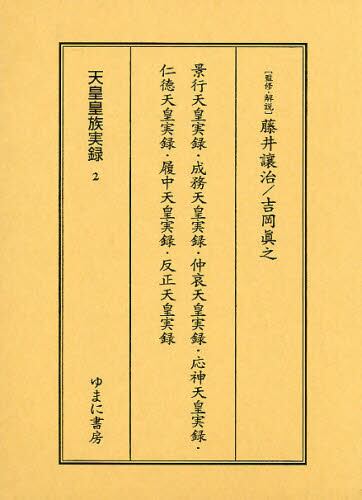 ［監修・解説］藤井讓治／吉岡眞之
景行天皇実録・成務天皇実録・仲哀天皇実録・応神天皇実録・
仁徳天皇実録・履中天皇実録・反正天皇実録
天皇皇族実録 2
ゆまに書房